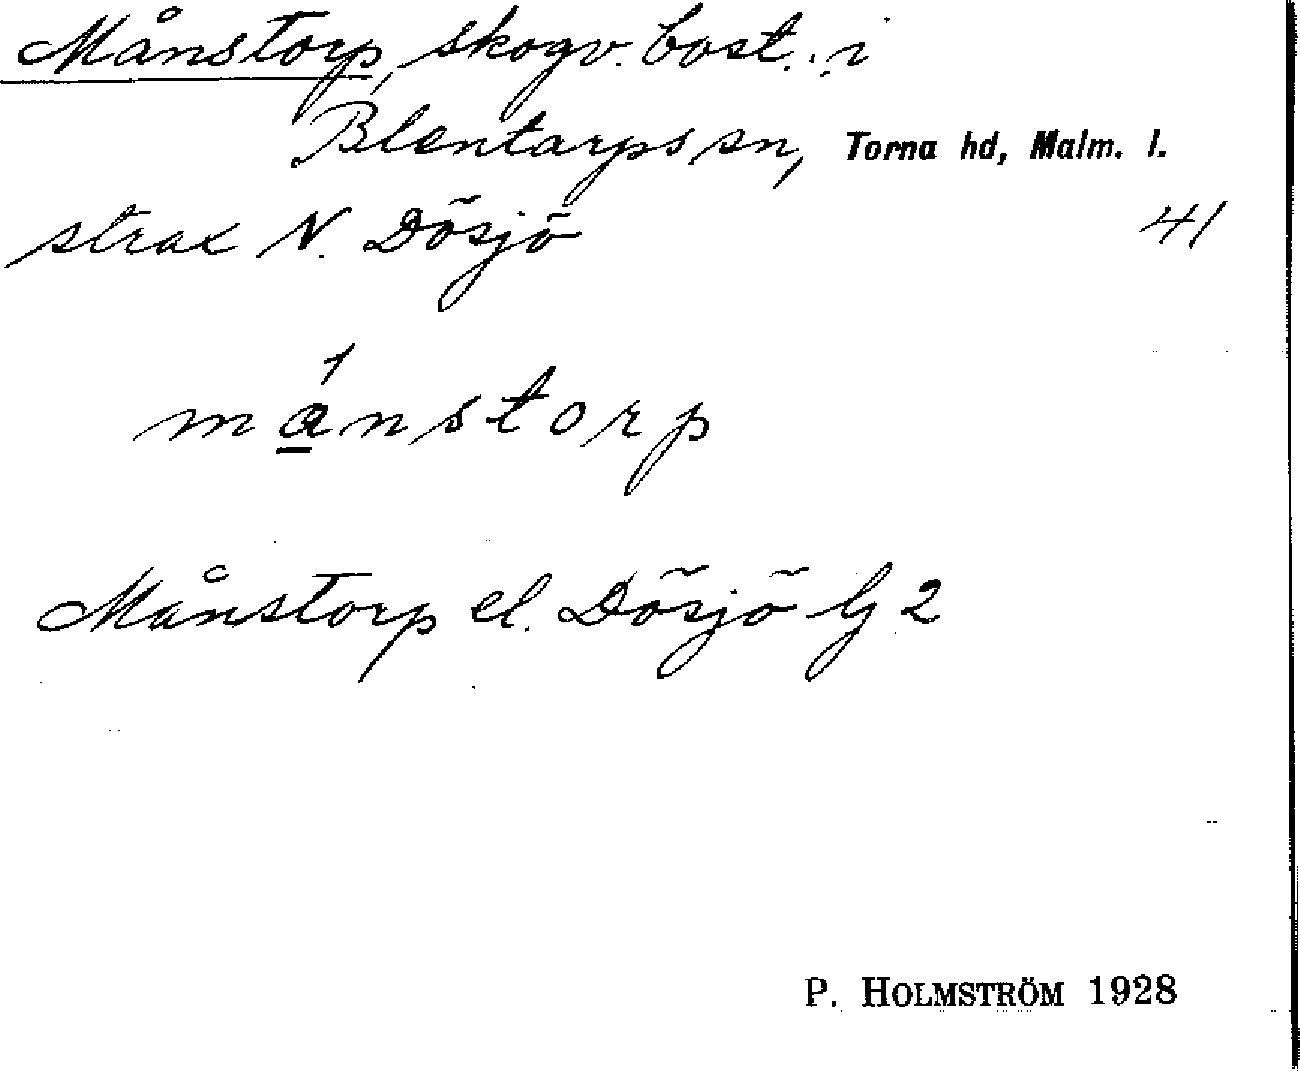 Månstorp, skogv. bost. i
Blentarps sn, Torna hd, Malm. l.
strax N. Dösjö 41
mánstorp
Månstorp el. Dösjö G 2
P. HOLMSTRÖM 1928